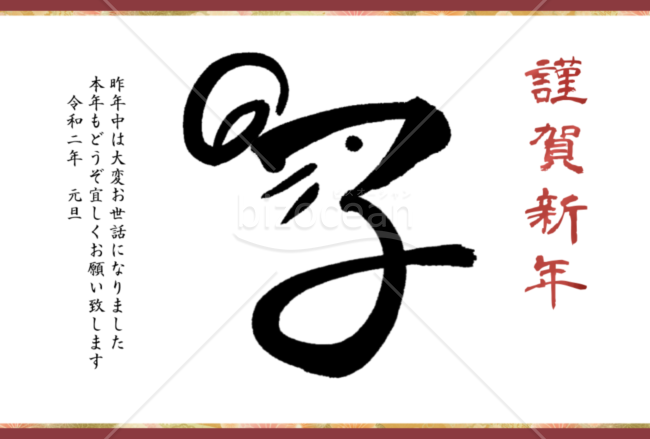 謹賀新年
子
昨年中は大変お世話になりました
本年もどうぞ宜しくお願い致します
令和二年　元旦
bizocean